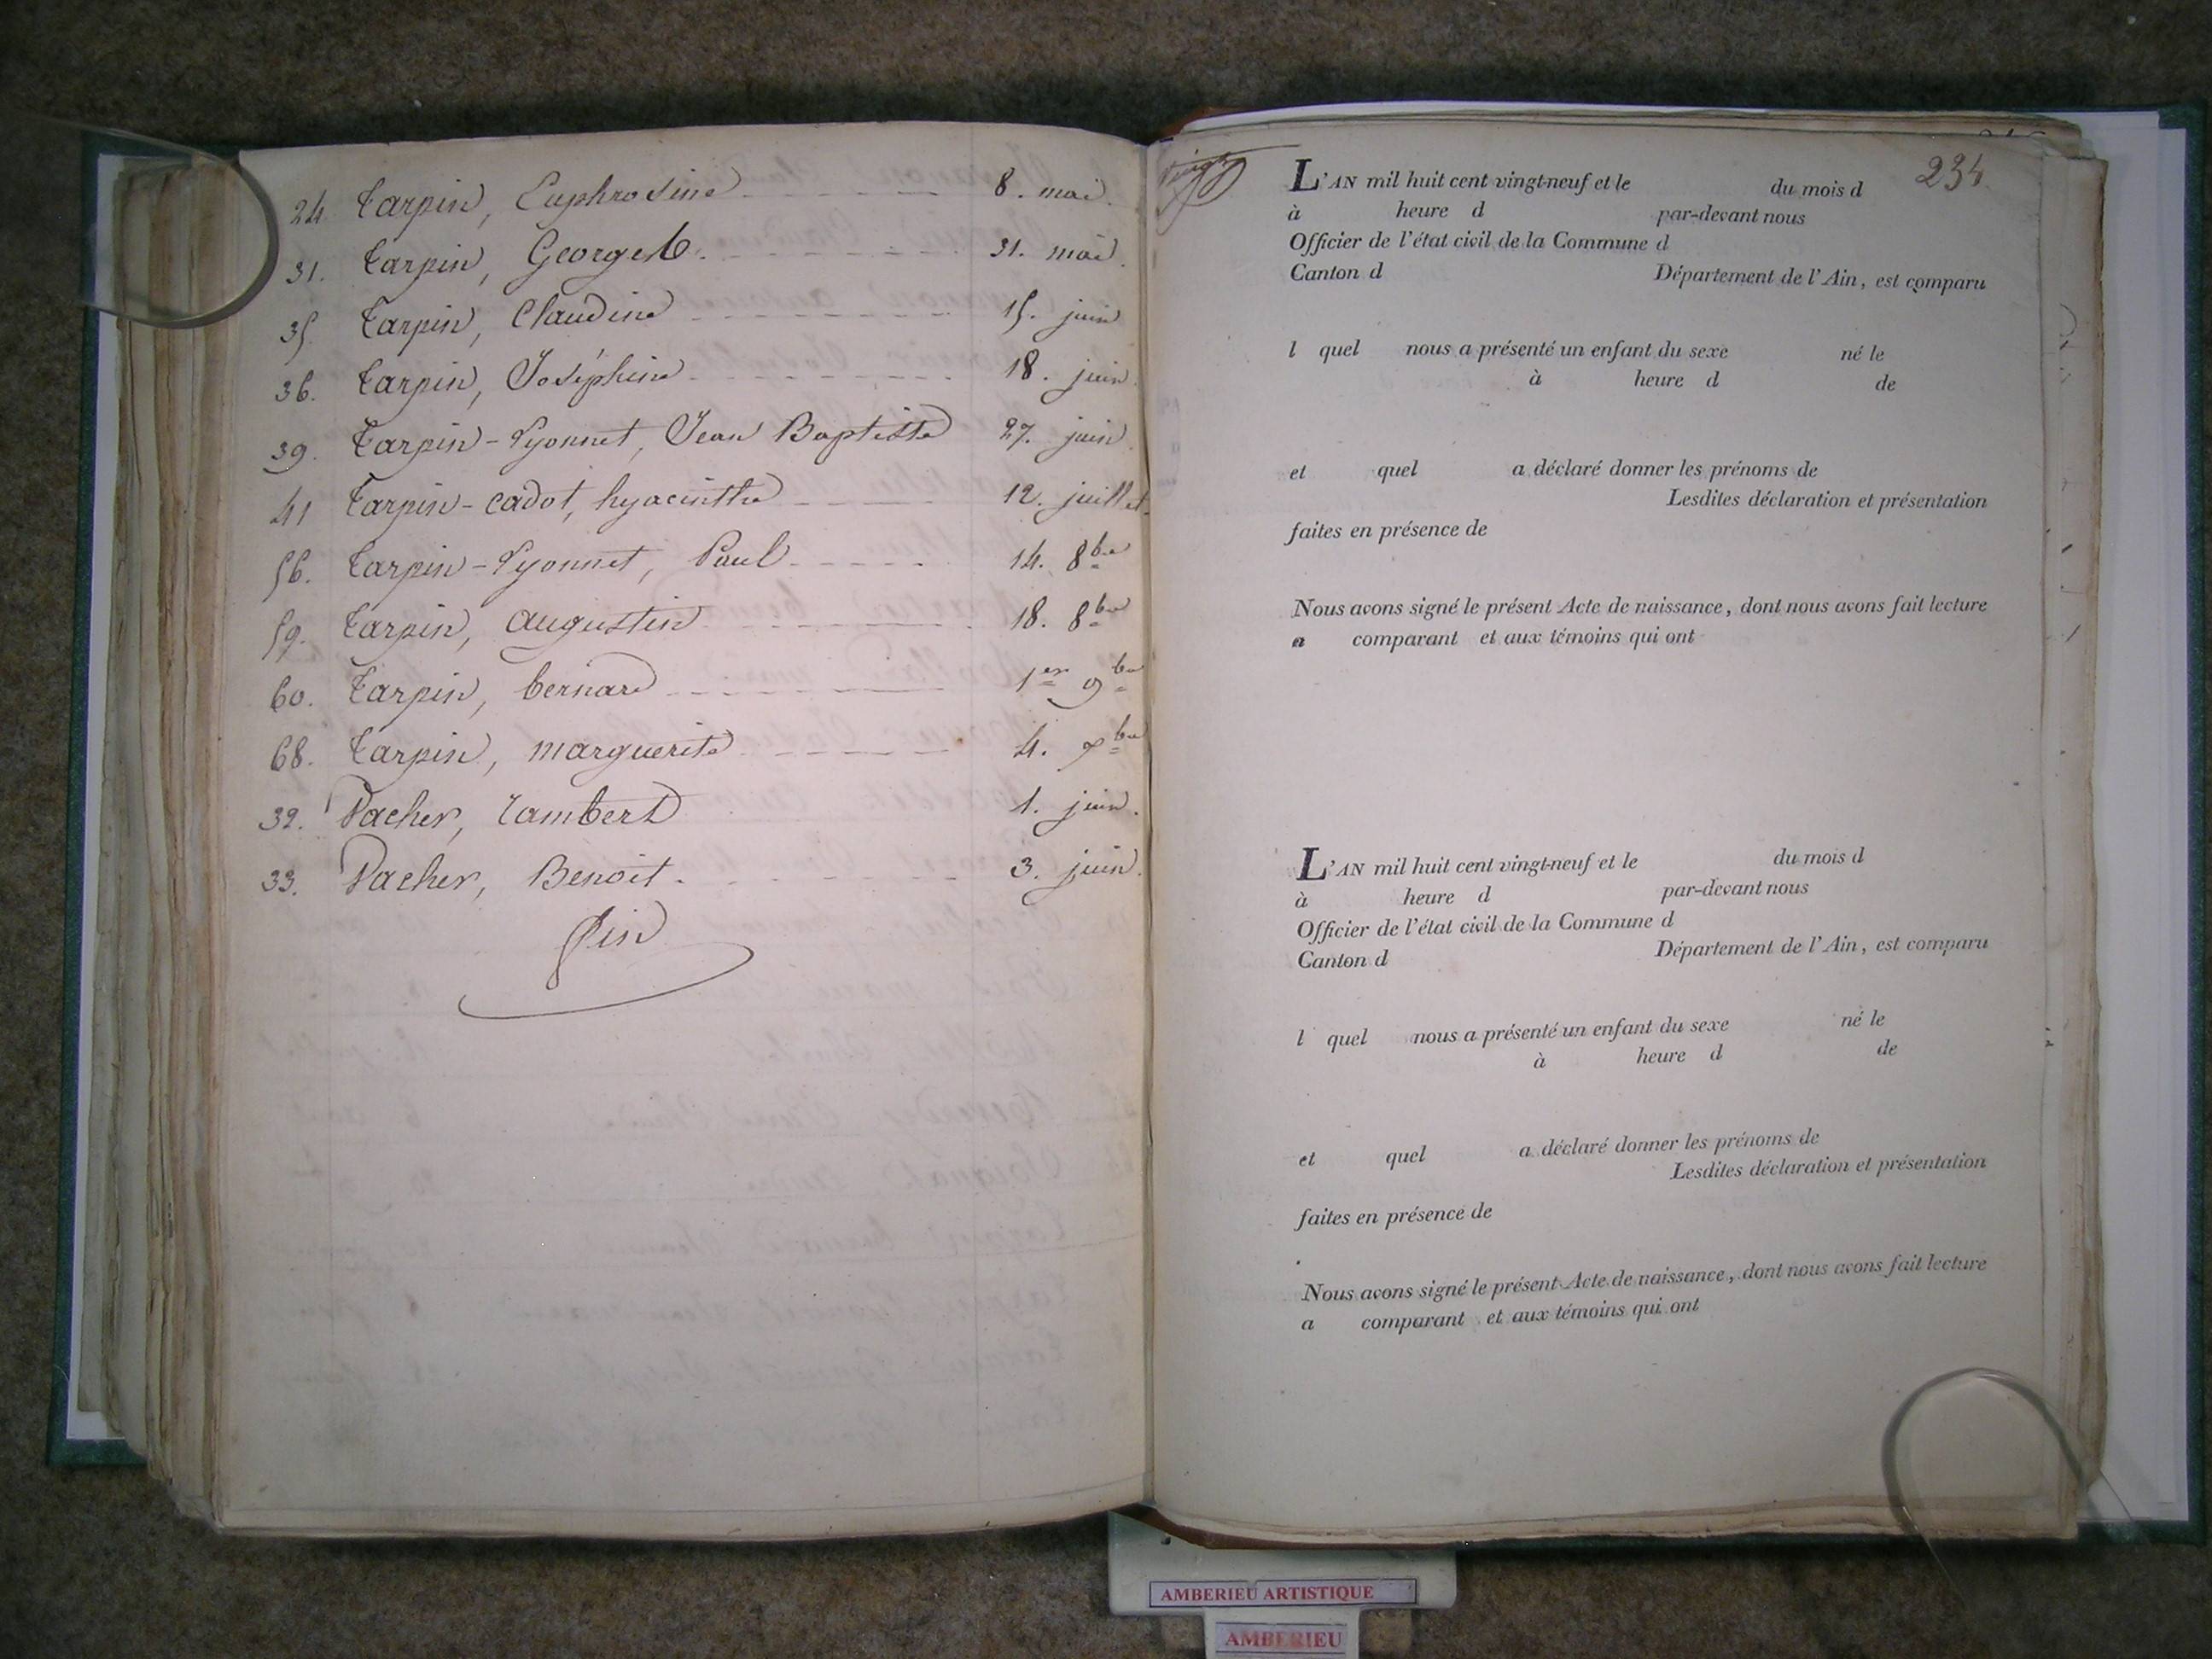 24 Tarpin, Euphrosine 8. mai.
31. Tarpin, George 31. mai.
35. Tarpin, Claudine 15. juin
36. Tarpin, Joséphine 18. juin
39. Tarpin-Lyonnet, Jean Baptiste 27. juin
41 Tarpin-cadot, hyacinthe 12. juillet.
56. Tarpin-Lyonnet, Paul 14. 8bre
59. Tarpin, augustin 18. 8bre
60. Tarpin, bernard 1er 9bre
68. Tarpin, marguerite 4. Xbre
32. Vacher, Lambert 1. juin.
33. Vacher, Benoit. 3. juin.
fin
234
L'AN mil huit cent vingt-neuf et le du mois d
à heure d par-devant nous
Officier de l'état civil de la Commune d
Canton d Département de l'Ain, est comparu
l quel nous a présenté un enfant du sexe né le
à heure d de
et quel a déclaré donner les prénoms de
Lesdites déclaration et présentation
faites en présence de
Nous avons signé le présent Acte de naissance, dont nous avons fait lecture
a comparant et aux témoins qui ont
L'AN mil huit cent vingt-neuf et le du mois d
à heure d par-devant nous
Officier de l'état civil de la Commune d
Canton d Département de l'Ain, est comparu
l quel nous a présenté un enfant du sexe né le
à heure d de
et quel a déclaré donner les prénoms de
Lesdites déclaration et présentation
faites en présence de
Nous avons signé le présent Acte de naissance, dont nous avons fait lecture
a comparant et aux témoins qui ont
AMBERIEU ARTISTIQUE
AMBERIEU